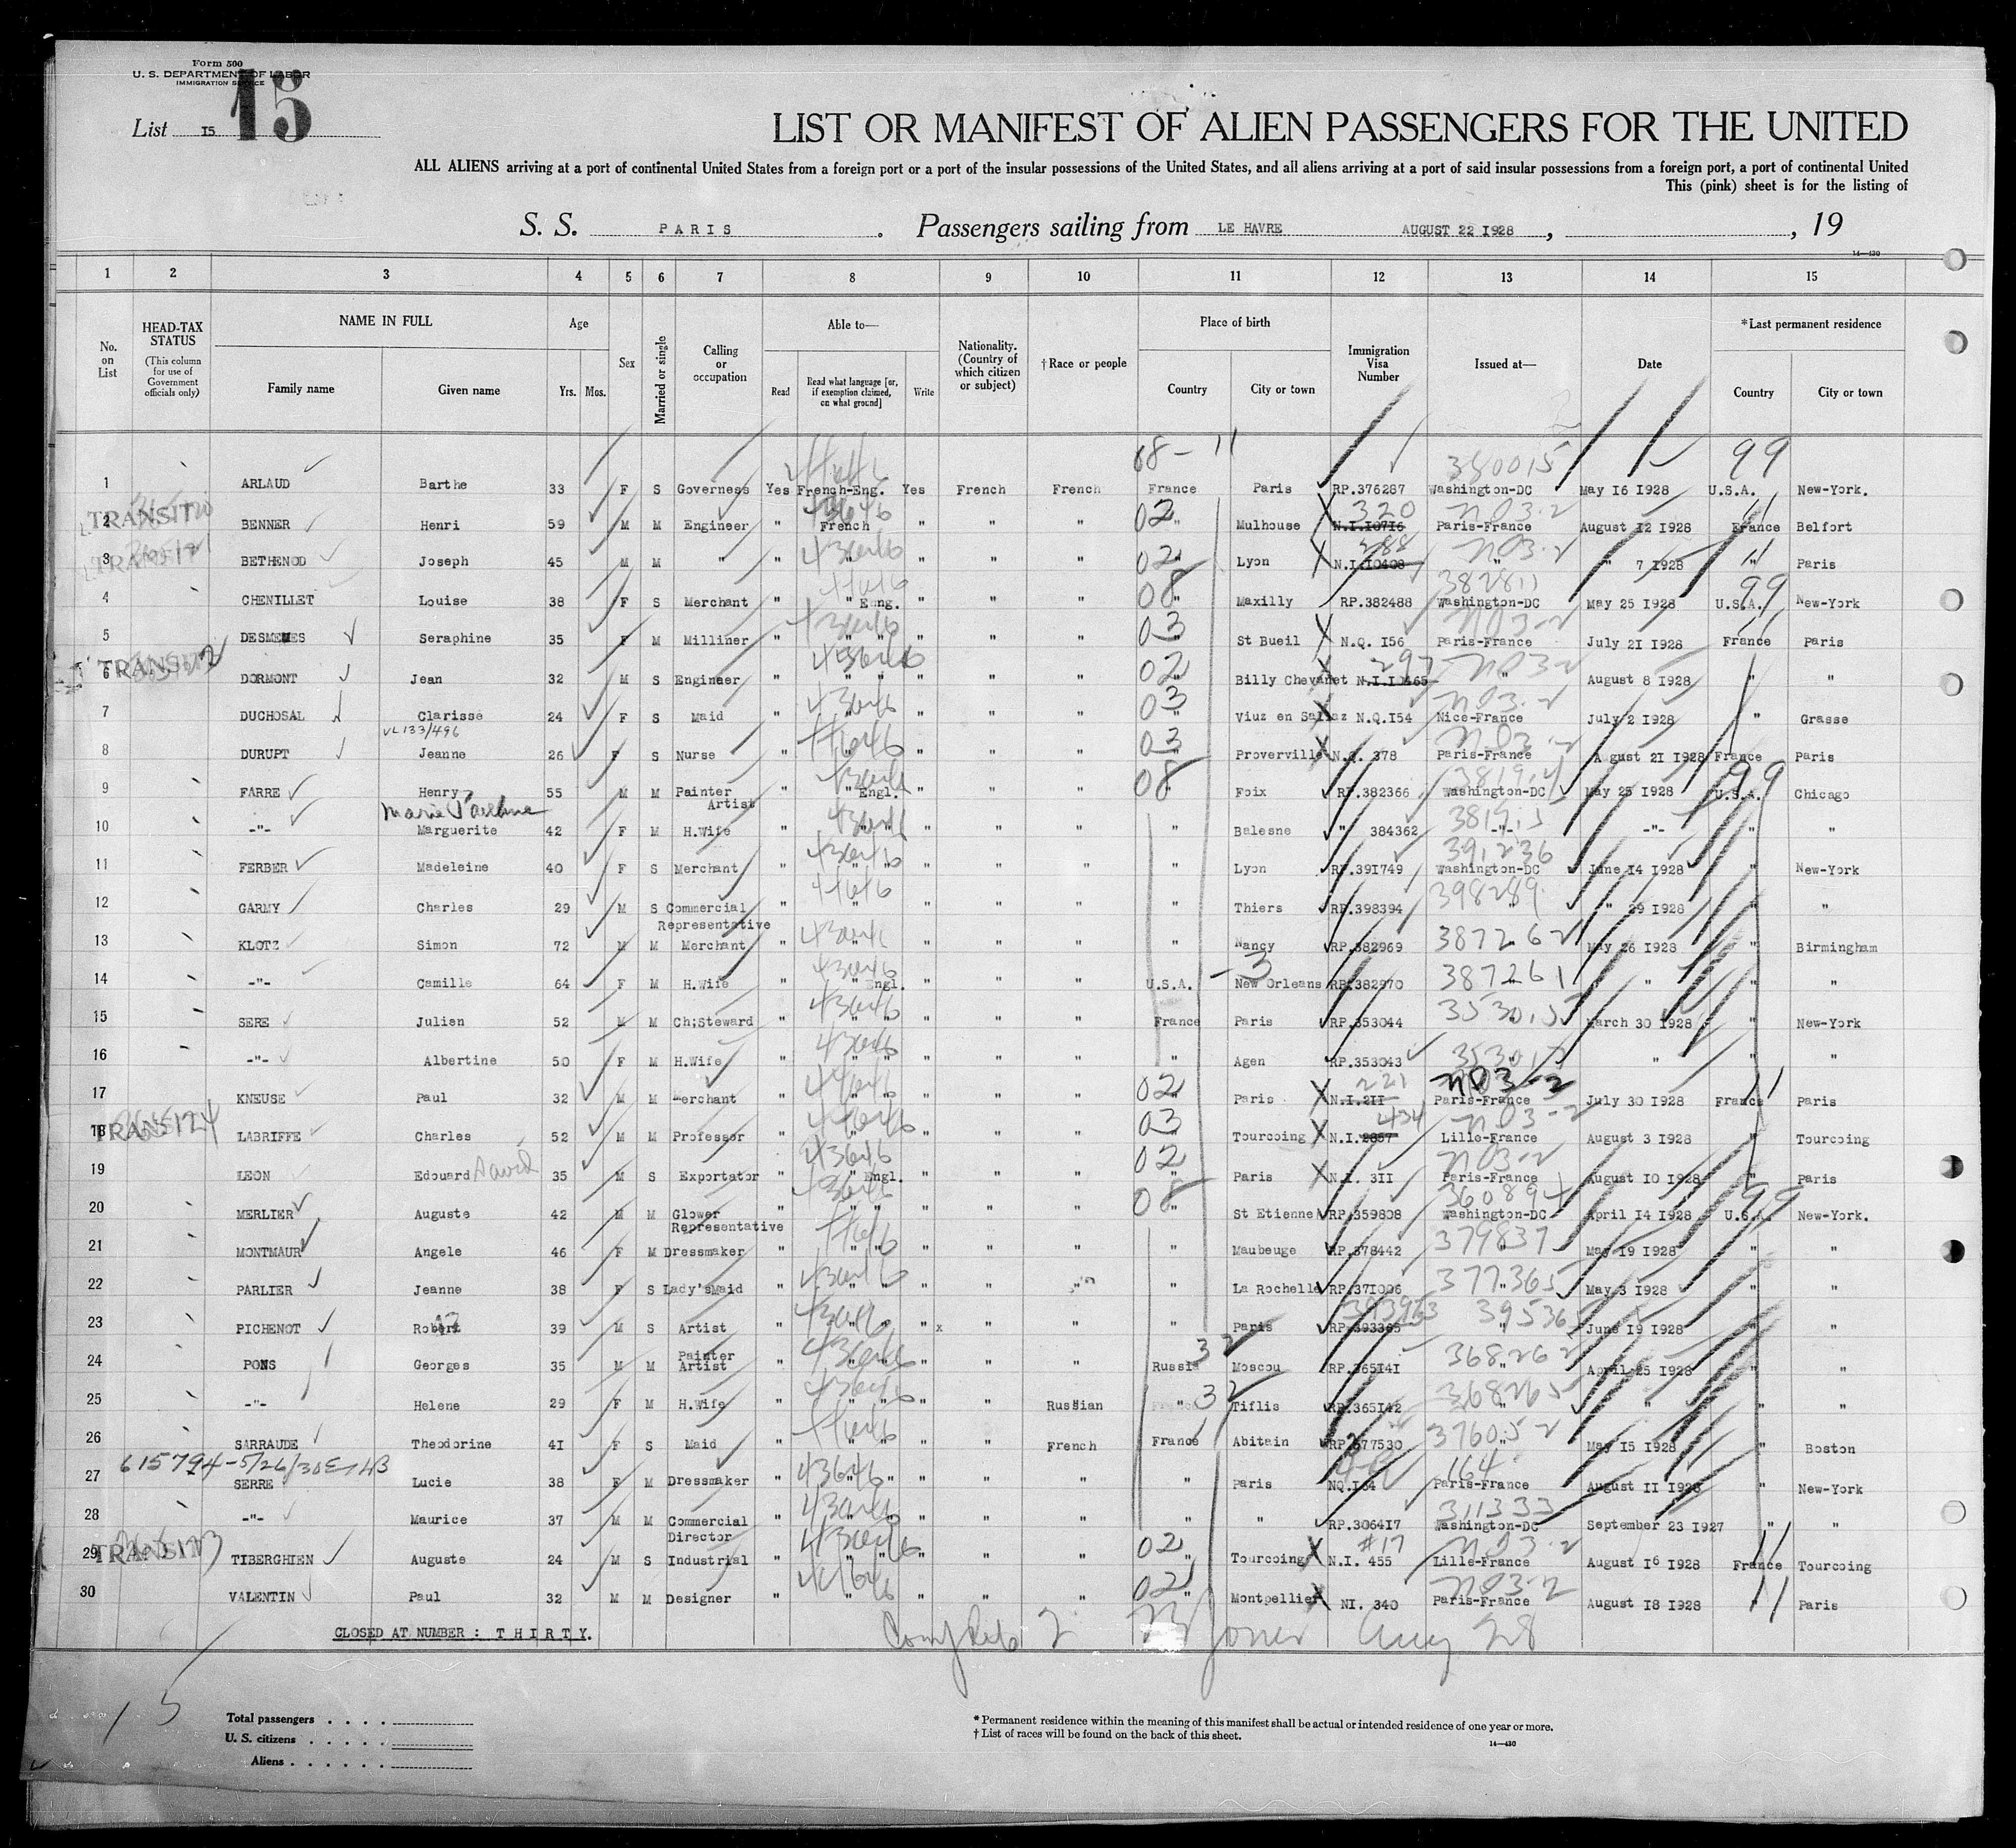 Form 500
U. S. DEPARTMENT OF LABOR
IMMIGRATION SERVICE
List I5 15
LIST OR MANIFEST OF ALIEN PASSENGERS FOR THE UNITED
ALL ALIENS arriving at a port of continental United States from a foreign port or a port of the insular possessions of the United States, and all aliens arriving at a port of said insular possessions from a foreign port, a port of continental United
This (pink) sheet is for the listing of
S. S. PARIS. Passengers sailing from LE HAVRE AUGUST 22 I928, , 19
14—430
1 2 3 4 5 6 7 8 9 10 11 12 13 14 15
No. on List
HEAD-TAX STATUS
(This column for use of Government officials only)
NAME IN FULL
Family name Given name
Age
Yrs. Mos.
Sex
Married or single
Calling or occupation
Able to—
Read Read what language [or, if exemption claimed, on what ground] Write
Nationality. (Country of which citizen or subject)
†Race or people
Place of birth
Country City or town
Immigration Visa Number
Issued at—
Date
*Last permanent residence
Country City or town
68- 11 380015 99
1 ARLAUD Barthe 33 F S Governess Yes French-Eng. Yes French French France Paris RP.376287 Washington-DC May I6 I928 U.S.A. New-York.
TRANSIT 02 320 N03-2
2 BENNER Henri 59 M M Engineer " French " " " " Mulhouse N.I.I07I6 Paris-France August I2 I928 France Belfort
TRANSIT 43646 02 288 N03-2
3 BETHENOD Joseph 45 M M " " " " " " " Lyon N.I.I0408 " " 7 I928 " Paris
08 382811 99
4 CHENILLET Louise 38 F S Merchant " " Eung. " " " " Maxilly RP.382488 Washington-DC May 25 I928 U.S.A. New-York
43646 03 N03-2
5 DESMEMES Seraphine 35 F M Milliner " " " " " " " St Bueil N.Q. I56 Paris-France July 2I I928 France Paris
TRANSIT 43646 02 297 N03-2
6 DORMONT Jean 32 M S Engineer " " " " " " " Billy Chevanet N.I.I0465 " August 8 I928 " "
43646 03 N03-2
7 DUCHOSAL Clarisse 24 F S Maid " " " " " " Viuz en Sallaz N.Q.I54 Nice-France July 2 I928 " Grasse
VL 133/496 03 N03-2
8 DURUPT Jeanne 26 F S Nurse " " " " " " Proverville N.Q. 378 Paris-France August 2I I928 France Paris
43646 08 99
9 FARRE Henry 55 M M Painter Artist " " Engl. " " " " Foix RP.382366 Washington-DC May 25 I928 U.S.A. Chicago
Marie Pauline 43646 381915
10 -"- Marguerite 42 F M H.Wife " " " " " " " Balesne " 384362 -"- -"- " "
43646 391236
11 FERBER Madeleine 40 F S Merchant " " " " " " " Lyon RP.39I749 Washington-DC June I4 I928 " New-York
398289
12 GARMY Charles 29 M S Commercial Representative " " " " " " Thiers RP.398394 " " 29 I928 " "
43646 387262
13 KLOTZ Simon 72 M M Merchant " " " " " " Nancy RP.382969 " May 26 I928 " Birmingham
43646 -3 387261
14 -"- Camille 64 F M H.Wife " " Engl. " " " U.S.A. New Orleans RP.382970 " " " "
43646 353015
15 SERE Julien 52 M M Ch;Steward " " " " " " France Paris RP.353044 " March 30 I928 " New-York
43646
16 -"- Albertine 50 F M H.Wife " " " " " " " Agen RP.353043 " " " "
02 221 N03-2
17 KNEUSE Paul 32 M M Merchant " " " " " " " Paris N.I.2II Paris-France July 30 I928 France Paris
TRANSIT 03 434 N03-2
18 LABRIFFE Charles 52 M M Professor " " " " " " " Tourcoing N.I.2857 Lille-France August 3 I928 " Tourcoing
43646 02 N03-2
19 LEON Edouard David 35 M S Exportator " " Engl. " " " " Paris N.I. 3II Paris-France August I0 I928 " Paris
43646 08 360894 99
20 MERLIER Auguste 42 M M Glower Representative " " " " " " " St Etienne RP.359808 Washington-DC April I4 I928 U.S.A. New-York.
379837
21 MONTMAUR Angele 46 F M Dressmaker " " " " " " " Maubeuge RP.378442 " May I9 I928 " "
43646 377365
22 PARLIER Jeanne 38 F S Lady'sMaid " " " " " " " La Rochelle RP.37I006 " May 3 I928 " "
43646 395365
23 PICHENOT Robert 39 M S Artist " " " " x " " " Paris RP.393365 " June I9 I928 " "
43646 32 368262
24 PONS Georges 35 M M Painter Artist " " " " " " Russia Moscou RP.365I4I " April 25 I928 " "
43646 32 368265
25 -"- Helene 29 F M H.Wife " " " " " Russian " Tiflis RP.365I42 " " " "
376052
26 SARRAUDE Theodorine 4I F S Maid " " " " " French France Abitain RP.377530 " May I5 I928 " Boston
615794-5/26/30 43646 164
27 SERRE Lucie 38 F M Dressmaker " " " " " " " Paris NQ.I64 Paris-France August II I928 " New-York
43646 311333
28 -"- Maurice 37 M M Commercial Director " " " " " " " " RP.3064I7 Washington-DC September 23 I927 " "
TRANSIT 43646 02 #17 N03-2
29 TIBERGHIEN Auguste 24 M S Industrial " " " " " " " Tourcoing N.I. 455 Lille-France August I6 I928 France Tourcoing
02 N03-2
30 VALENTIN Paul 32 M M Designer " " " " " " Montpellier NI. 340 Paris-France August I8 I928 " Paris
CLOSED AT NUMBER : THIRTY. Jones Aug 28
15
Total passengers . . . .
U. S. citizens . . . . .
Aliens . . . . . .
* Permanent residence within the meaning of this manifest shall be actual or intended residence of one year or more.
† List of races will be found on the back of this sheet.
14—430